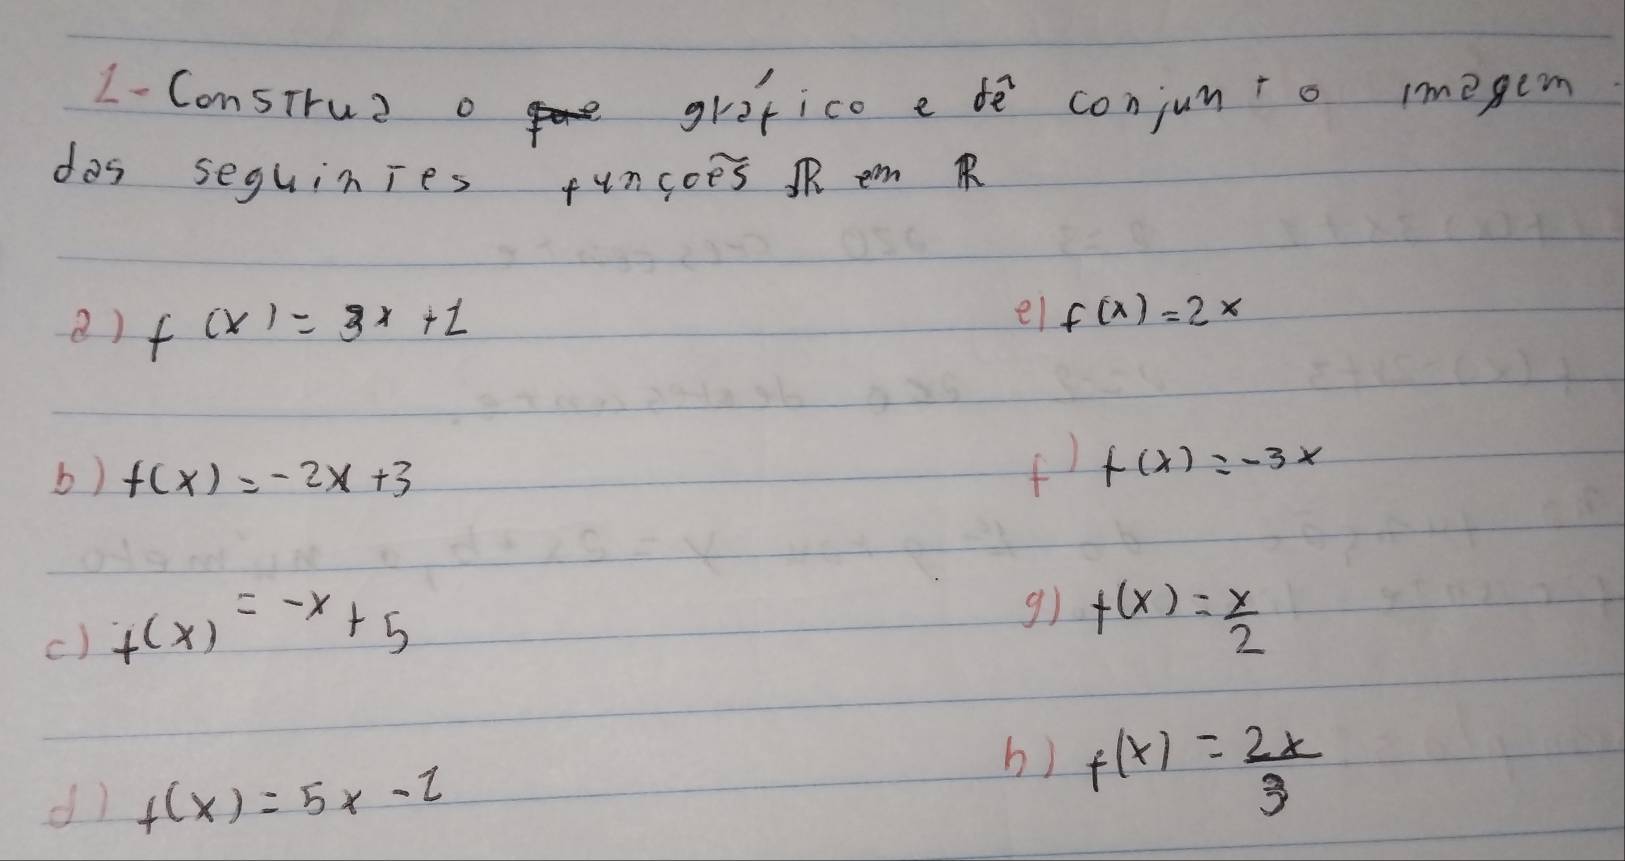 1- Construa o gráfico e dê conjunto imagem
das seguintes funções ℝ em ℝ
a) f(x) = 3x + 1
e) f(x) = 2x
b) f(x) = -2x + 3
f) f(x) = -3x
c) f(x) = -x + 5
g) f(x) = x/2
d) f(x) = 5x - 1
h) f(x) = 2x/3